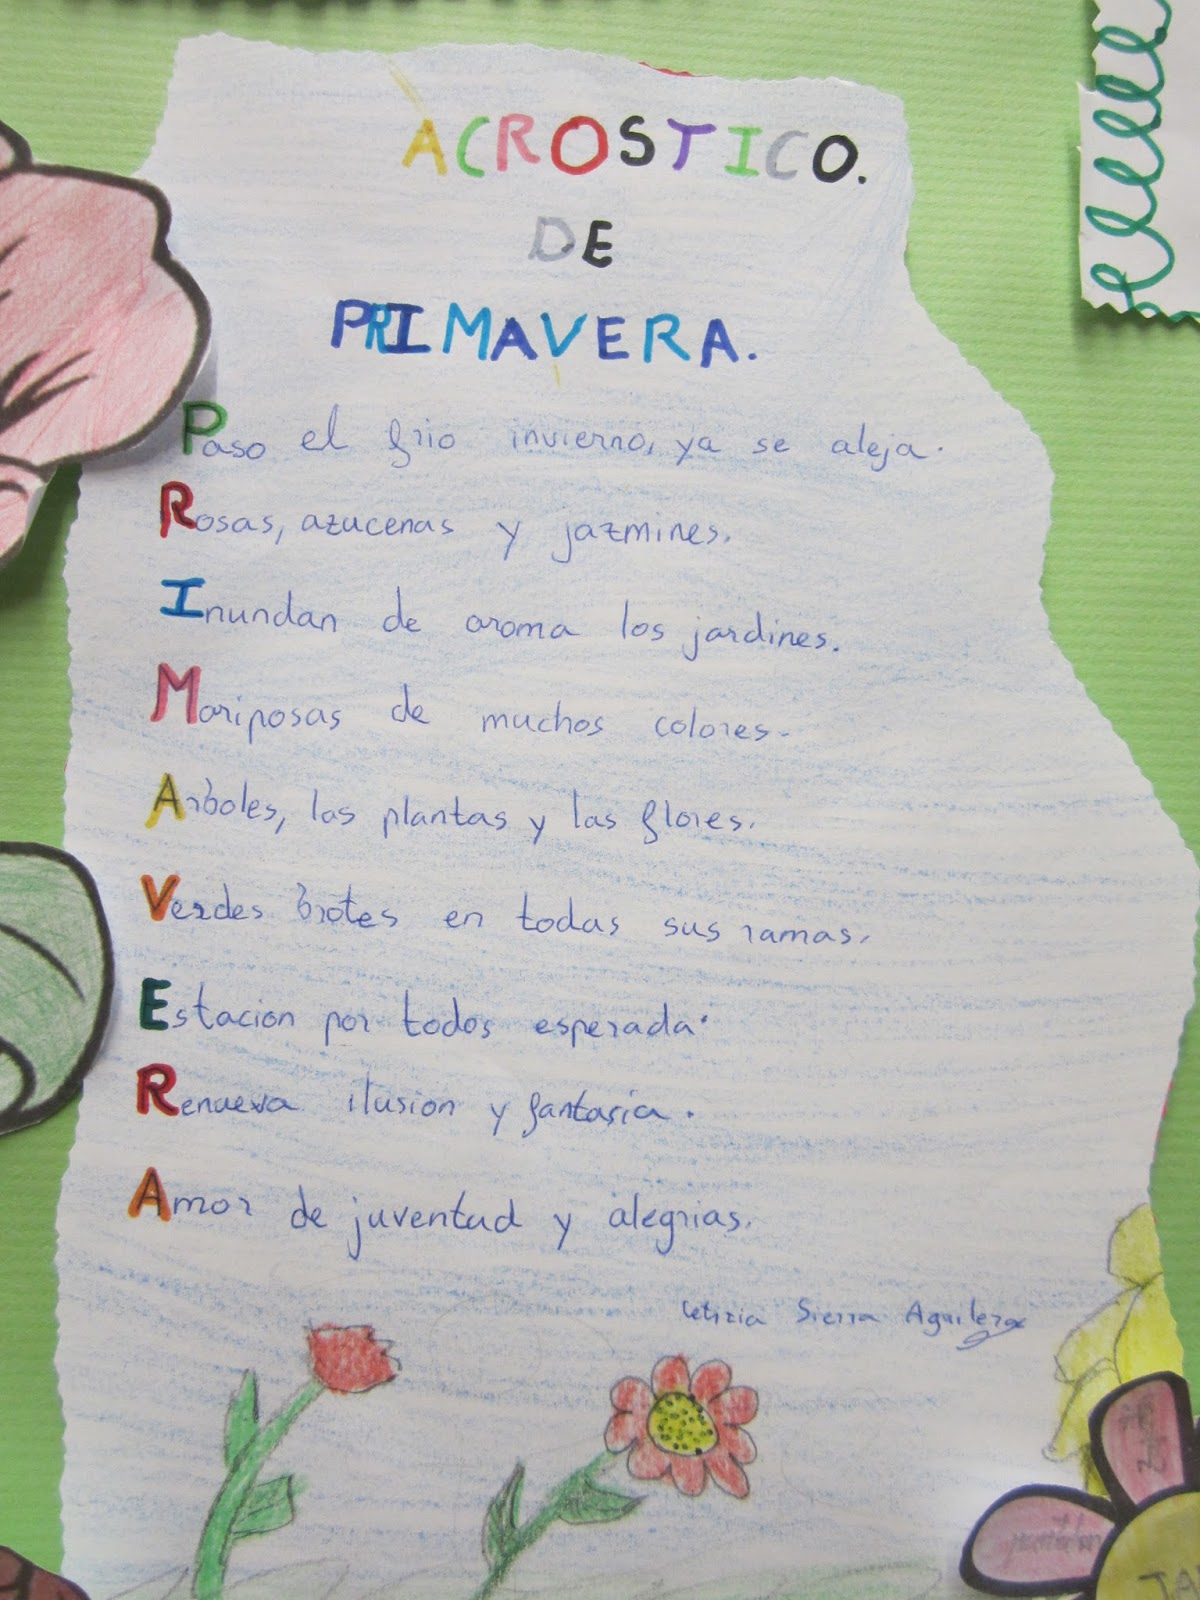 ACROSTICO.
DE
PRIMAVERA.
Paso el frio invierno, ya se aleja.
Rosas, azucenas y jazmines.
Inundan de aroma los jardines.
Mariposas de muchos colores.
Arboles, las plantas y las flores.
Verdes brotes en todas sus ramas.
Estacion por todos esperada.
Renueva ilusion y fantasia.
Amor de juventud y alegrias.
Letizia Sierra Aguilera